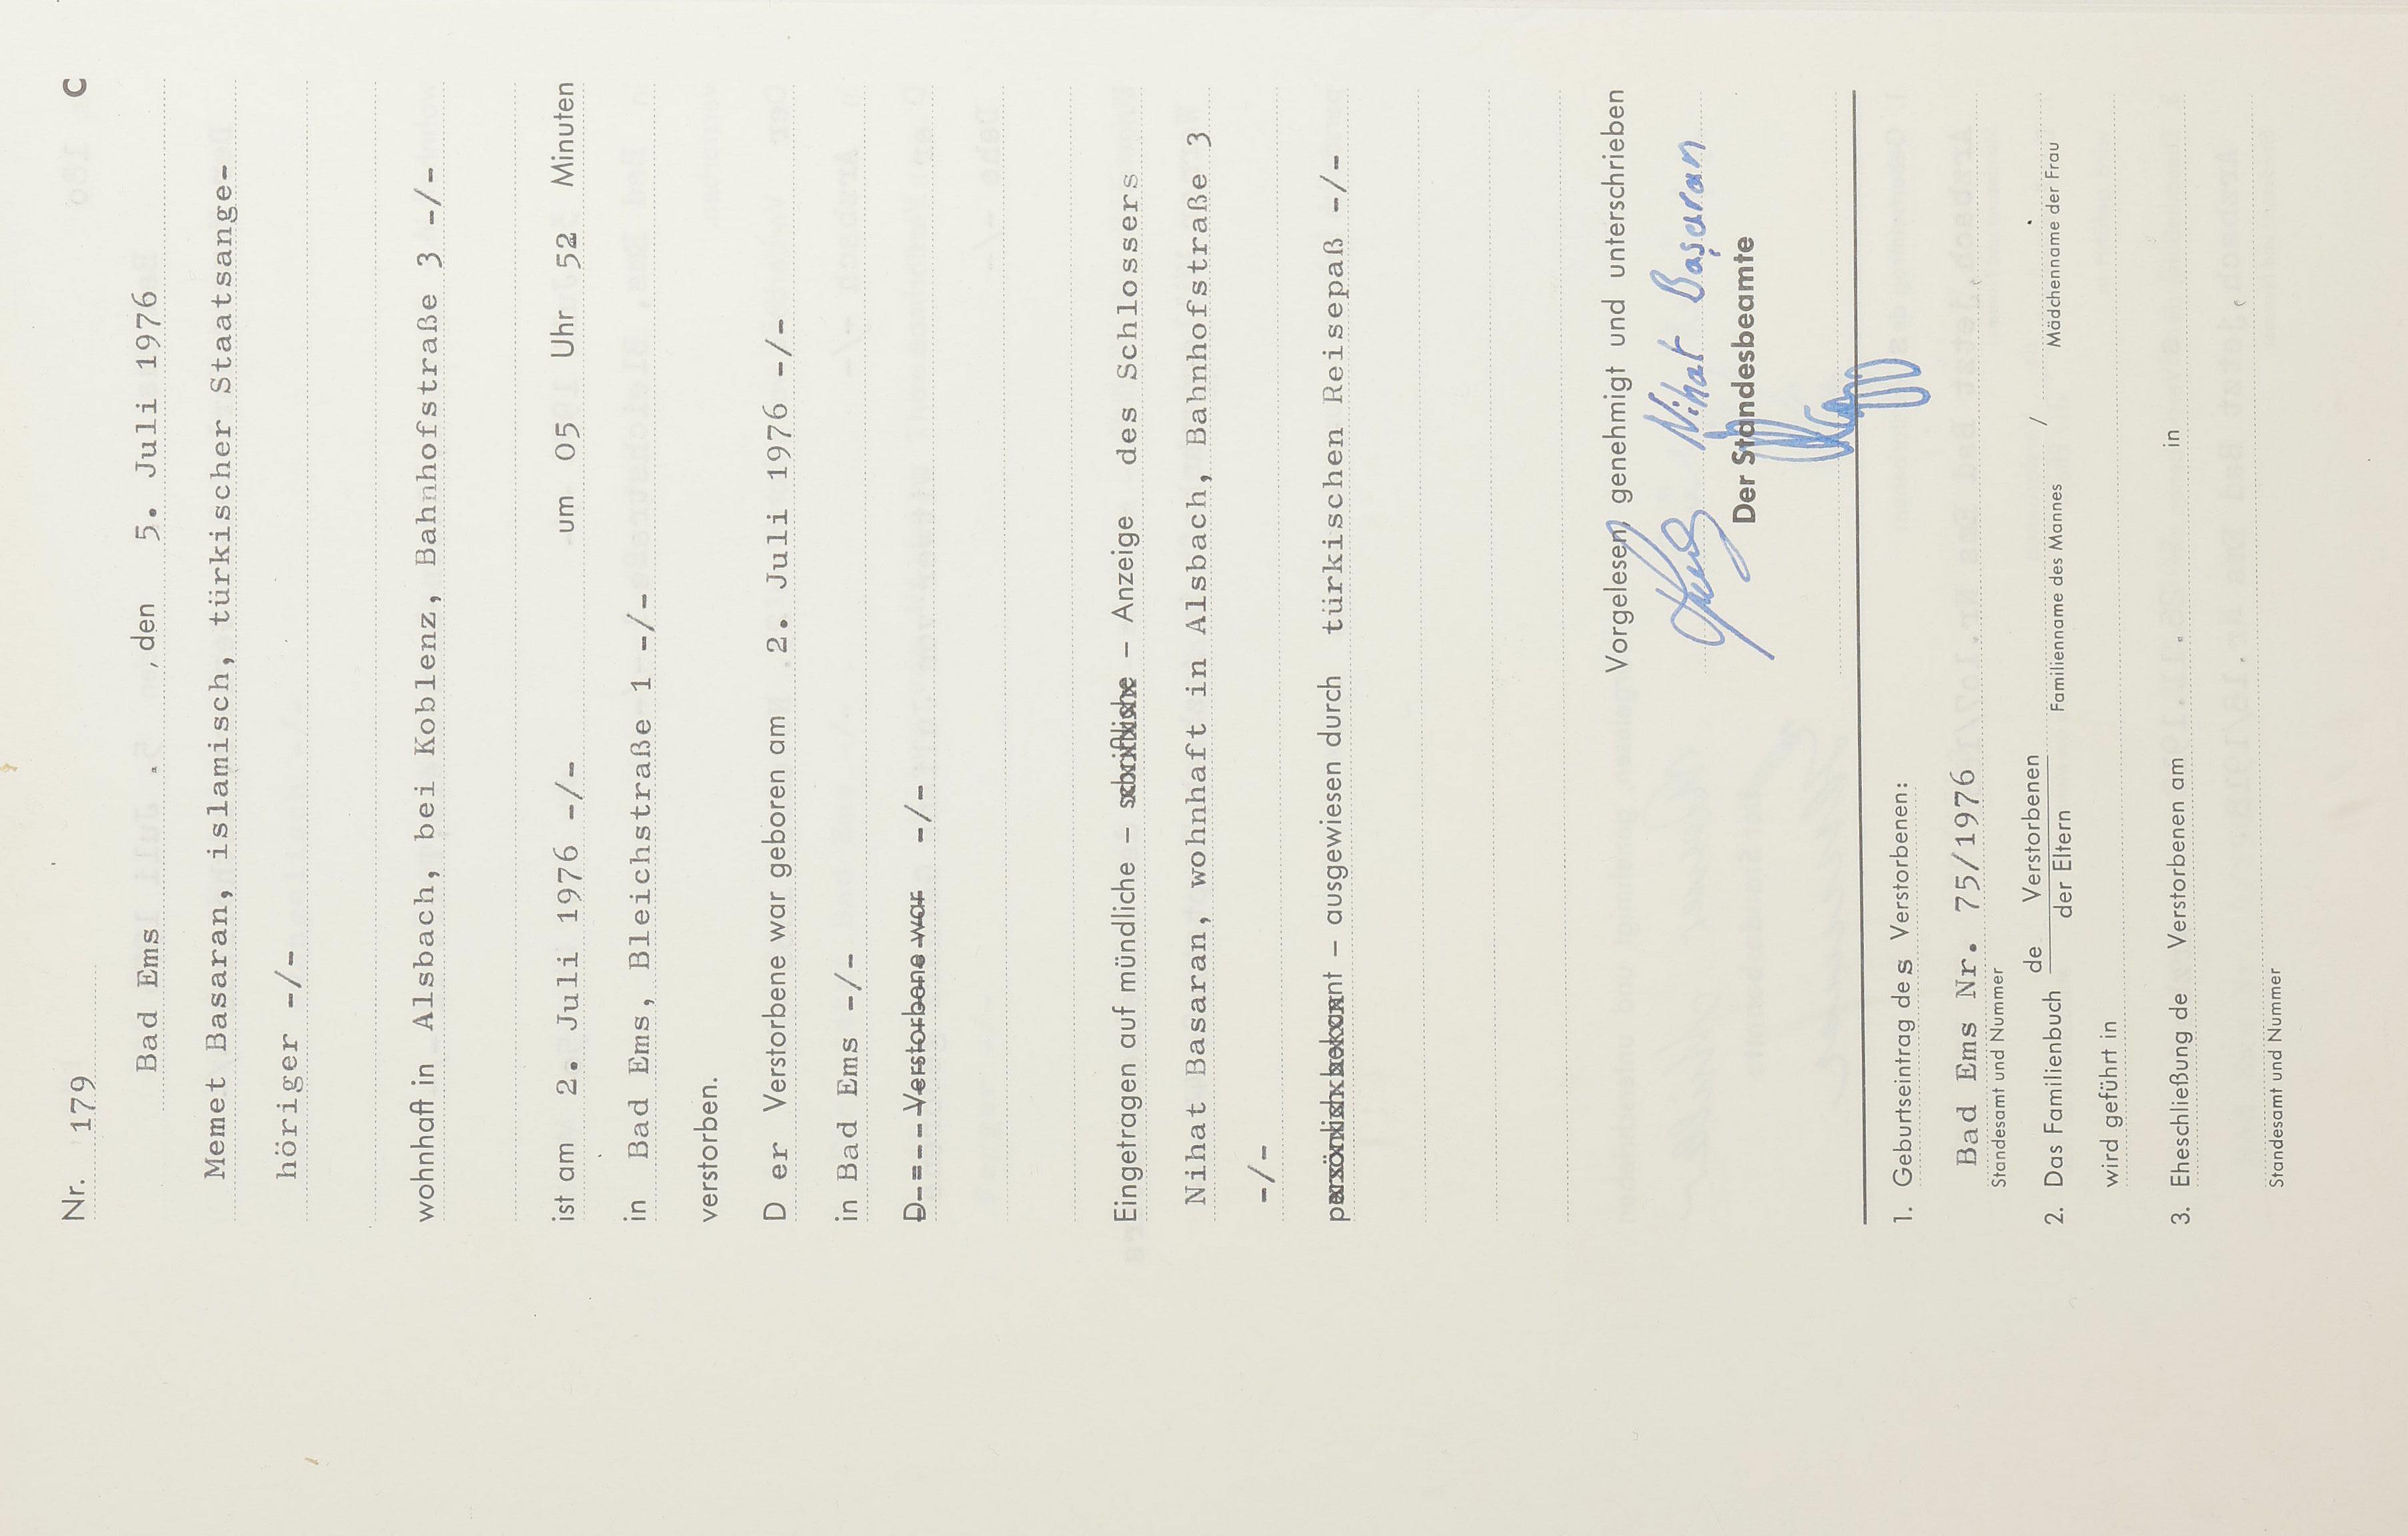 Nr. 179 C
Bad Ems , den 5. Juli 1976
Memet Basaran, islamisch, türkischer Staatsange-
höriger -/-
wohnhaft in Alsbach, bei Koblenz, Bahnhofstraße 3 -/-
ist am 2. Juli 1976 -/- um 05 Uhr 52 Minuten
in Bad Ems, Bleichstraße 1 -/-
verstorben.
D er Verstorbene war geboren am 2. Juli 1976 -/-
in Bad Ems -/-
D-=--- Verstorbene war -/-
Eingetragen auf mündliche – schriftliche – Anzeige des Schlossers
Nihat Basaran, wohnhaft in Alsbach, Bahnhofstraße 3
-/-
persönlich bekannt – ausgewiesen durch türkischen Reisepaß -/-
Vorgelesen, genehmigt und unterschrieben
Nihat Başaran
Der Standesbeamte
1. Geburtseintrag des Verstorbenen:
Bad Ems Nr. 75/1976
Standesamt und Nummer
2. Das Familienbuch de Verstorbenen / der Eltern /
Familienname des Mannes Mädchenname der Frau
wird geführt in
3. Eheschließung de Verstorbenen am in
Standesamt und Nummer